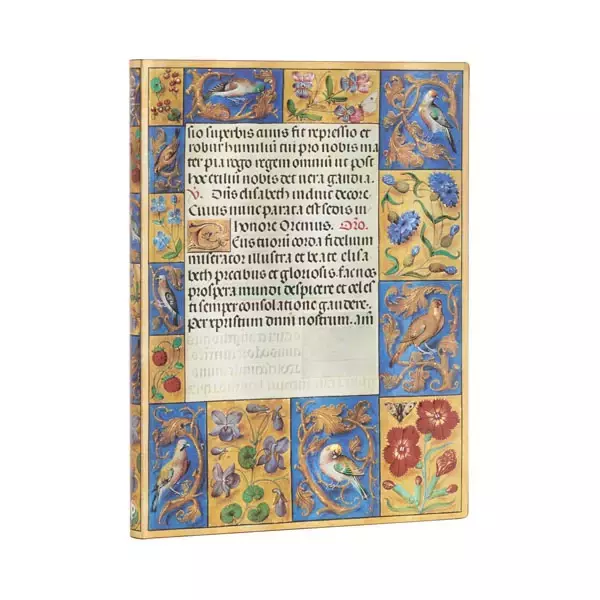 sio superbis cuius fit repressio et
robur humiliū tu pro nobis ma
ter pia rogo regem omniū ut post
hoc exiliū nobis det vera gaudia.
V. Dñs elisabeth induit decore.
Cuius nunc parata est sedis in
honore Oremus. Orō.
Tuorū corda fidelium
miserator illustra et beate elisa
beth precibus et gloriosis. fac nos
prospera mundi despicere et celes
ti semper consolatione gaudere.
Per xpristum dnm nostrum. Am